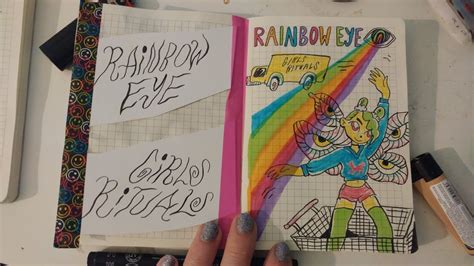 RAINBOW
EYE
GIRLS
RITUALS
RAINBOW EYE
GIRLS
RITUALS